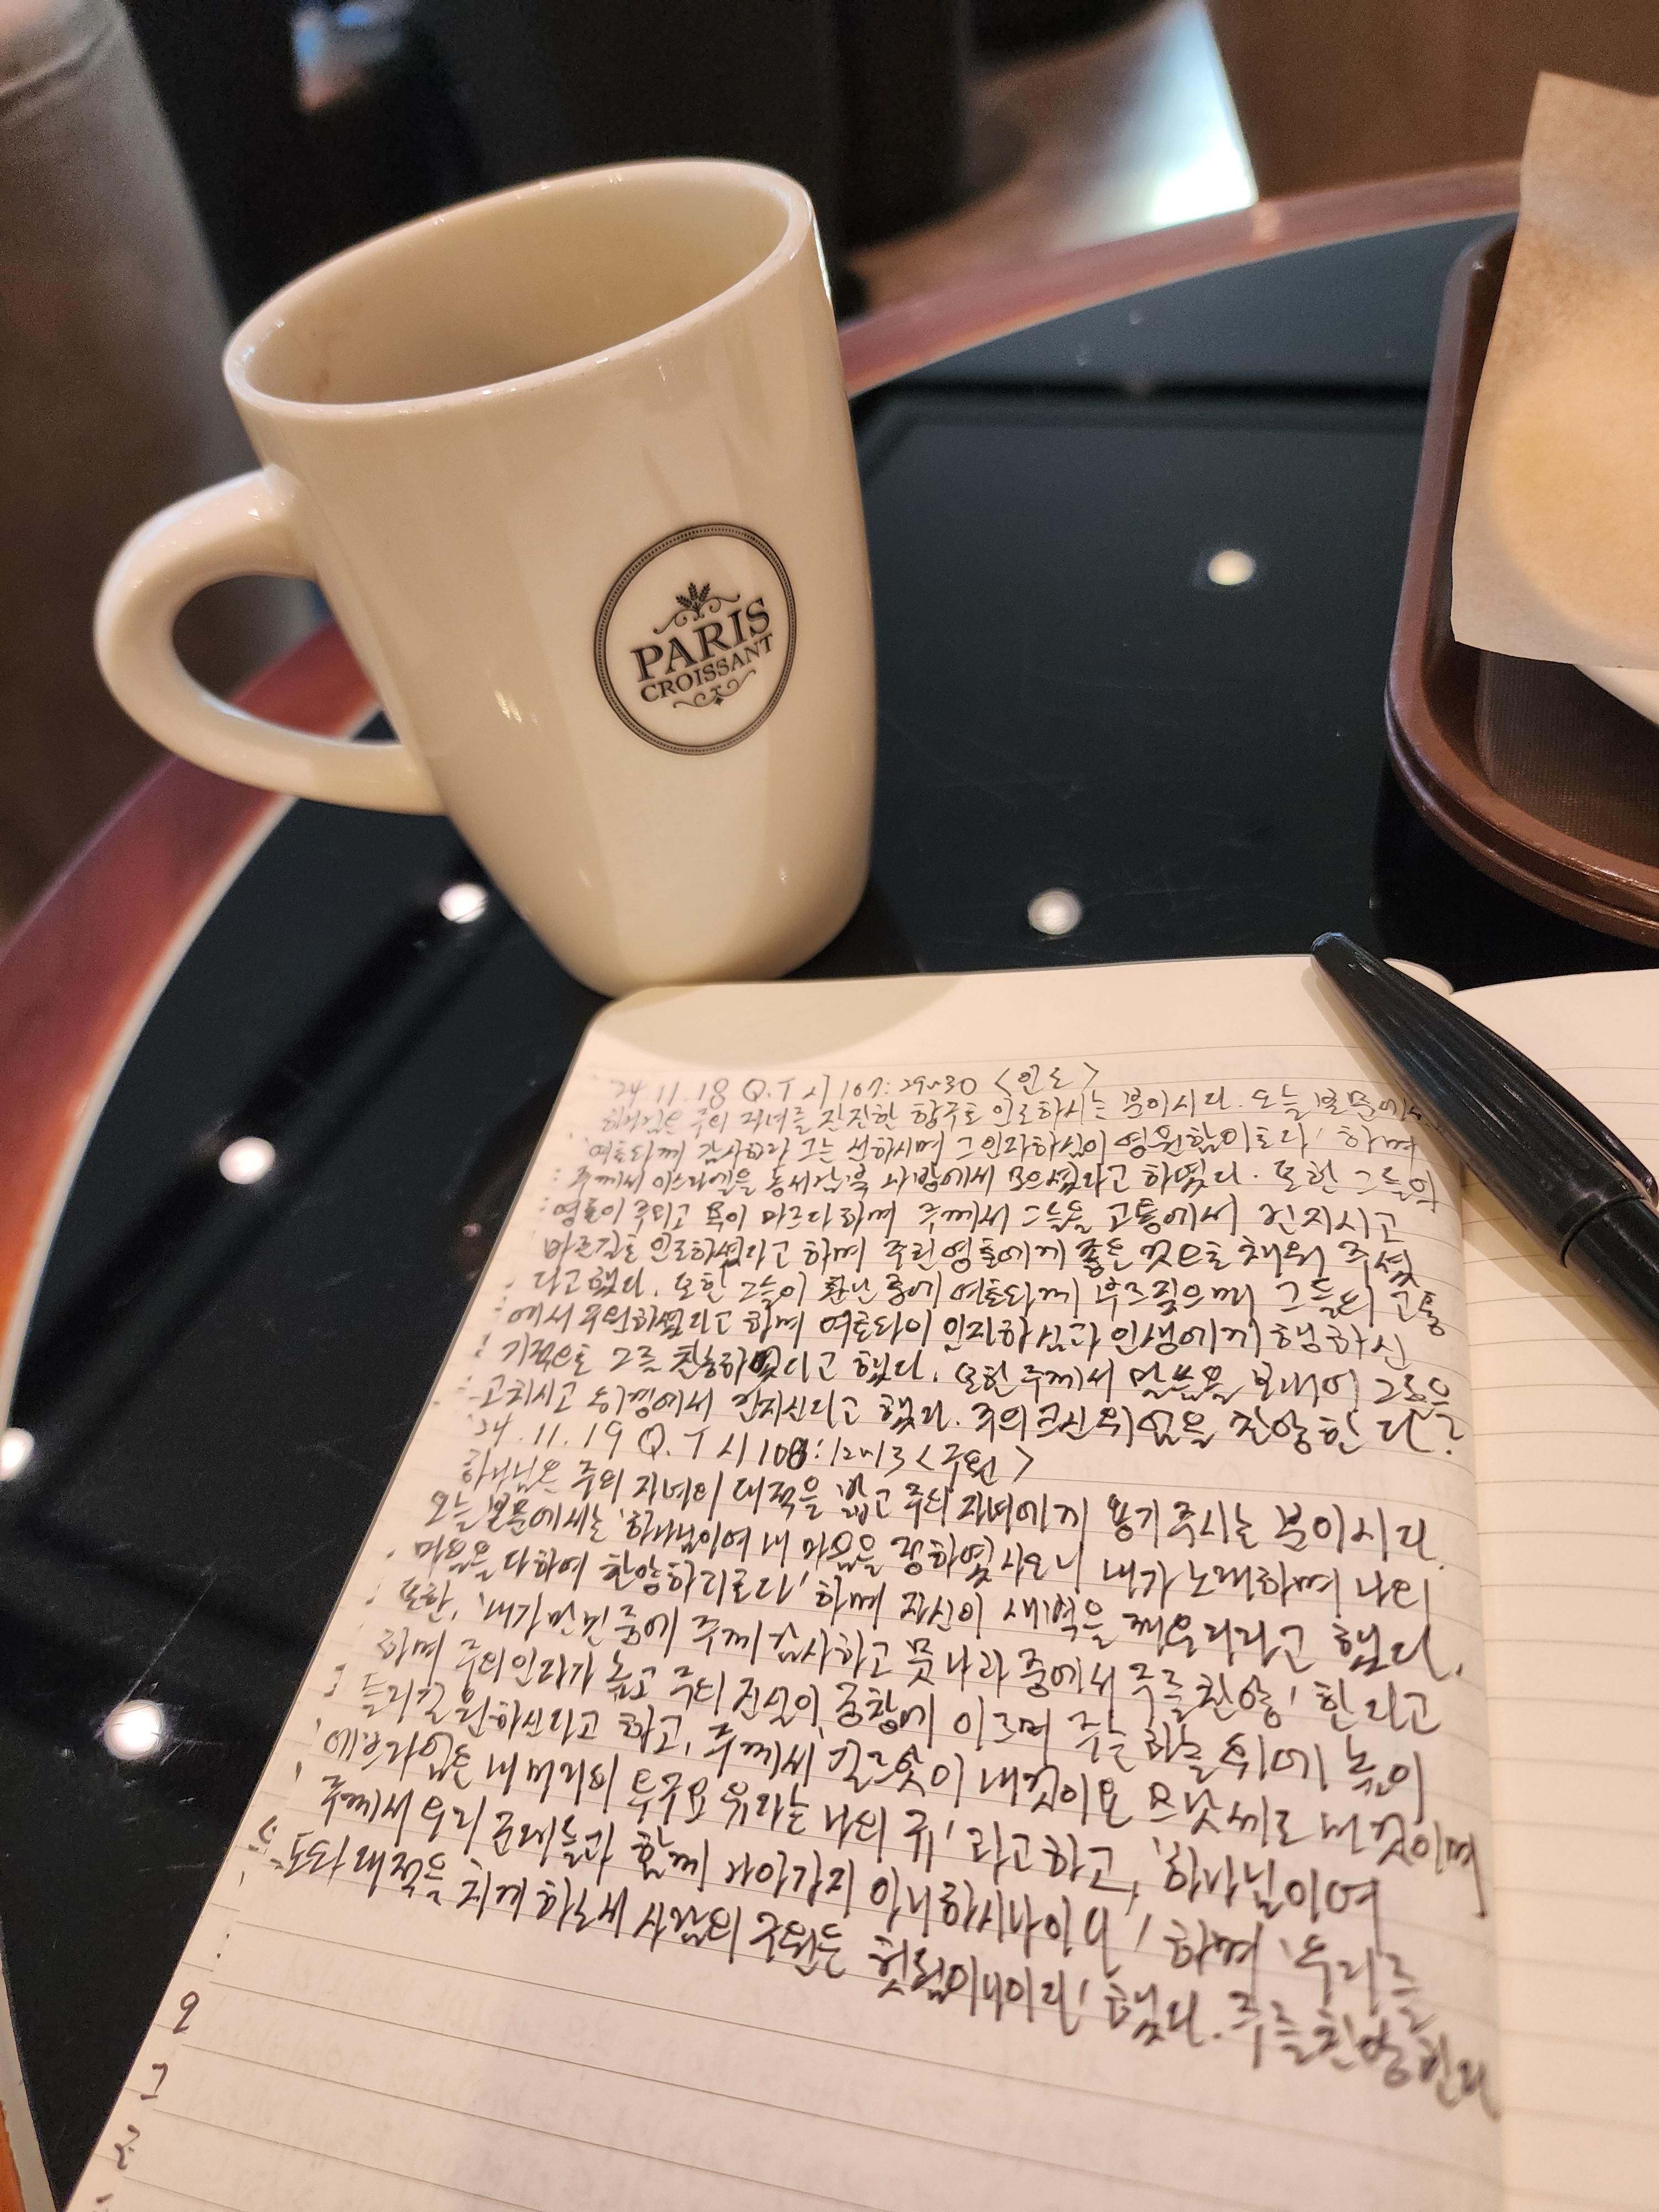 PARIS
CROISSANT
'24.11.18 Q.T 시107:29~30 <인도>
하나님은 주의 자녀를 진진한 항구로 인도하시는 분이시다. 오늘 본문에서
여호와께 감사하라 그는 선하시며 그 인자하심이 영원함이로다' 하며
주께서 이스라엘을 동서남북 사방에서 모으셨다고 하였다. 또한 그들의
영혼이 주리고 목이 마르다 하며 주께서 그들을 고통에서 건지시고
바른길로 인도하셨다고 하며 주린 영혼에게 좋은 것으로 채워 주셨
다고 했다. 또한 그들이 환난 중에 여호와께 부르짖으매 그들의 고통
에서 구원하셨다고 하며 여호와의 인자하심과 인생에게 행하신
기적으로 그를 찬송하였다고 했다. 또한 주께서 말씀을 보내어 그들을
고치시고 위경에서 건지신다고 했다. 주의 크신 위엄을 찬양한다.
'24.11.19 Q.T 시108:12~13 <구원>
하나님은 주의 자녀의 대적을 밟고 주의 자녀에게 용기 주시는 분이시다.
오늘 본문에서는 '하나님이여 내 마음을 정하였사오니 내가 노래하며 나의
마음을 다하여 찬양하리로다' 하며 자신이 새벽을 깨우리라고 했다.
또한, '내가 만민 중에 주께 감사하고 뭇나라 중에서 주를 찬양' 한다고
하며 주의 인자가 높고 주의 진실이 궁창에 이르며 주는 하늘 위에 높이
들리길 원하신다고 하고, 주께서 길르앗이 내것이요 므낫세도 내 것이며
에브라임은 내 머리의 투구요 유다는 나의 규' 라고 하고, '하나님이여
주께서 우리 군대들과 함께 나아가지 아니하시나이다' 하며 '우리를
도와 대적을 치게 하소서 사람의 구원은 헛됨이니이다' 했다. 주를 찬양한다